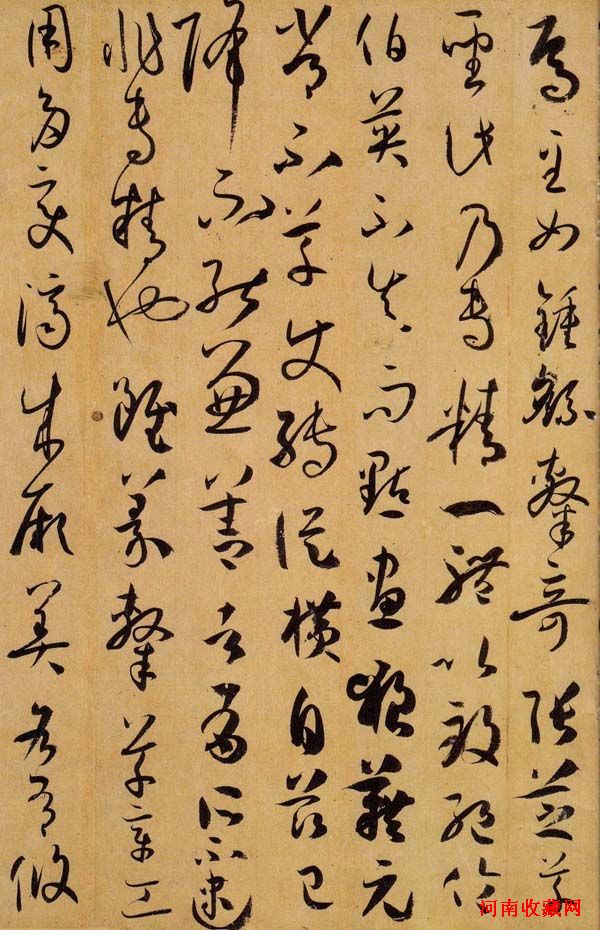 焉至如鍾繇隸奇張芝草
聖此乃專精一體以致絕倫
伯英不真而點畫狼藉元
常不草使轉從橫自茲已
降不能兼善者有所不逮
非專精也雖篆隸草章工
用多變濟成厥美各有攸
河南收藏网